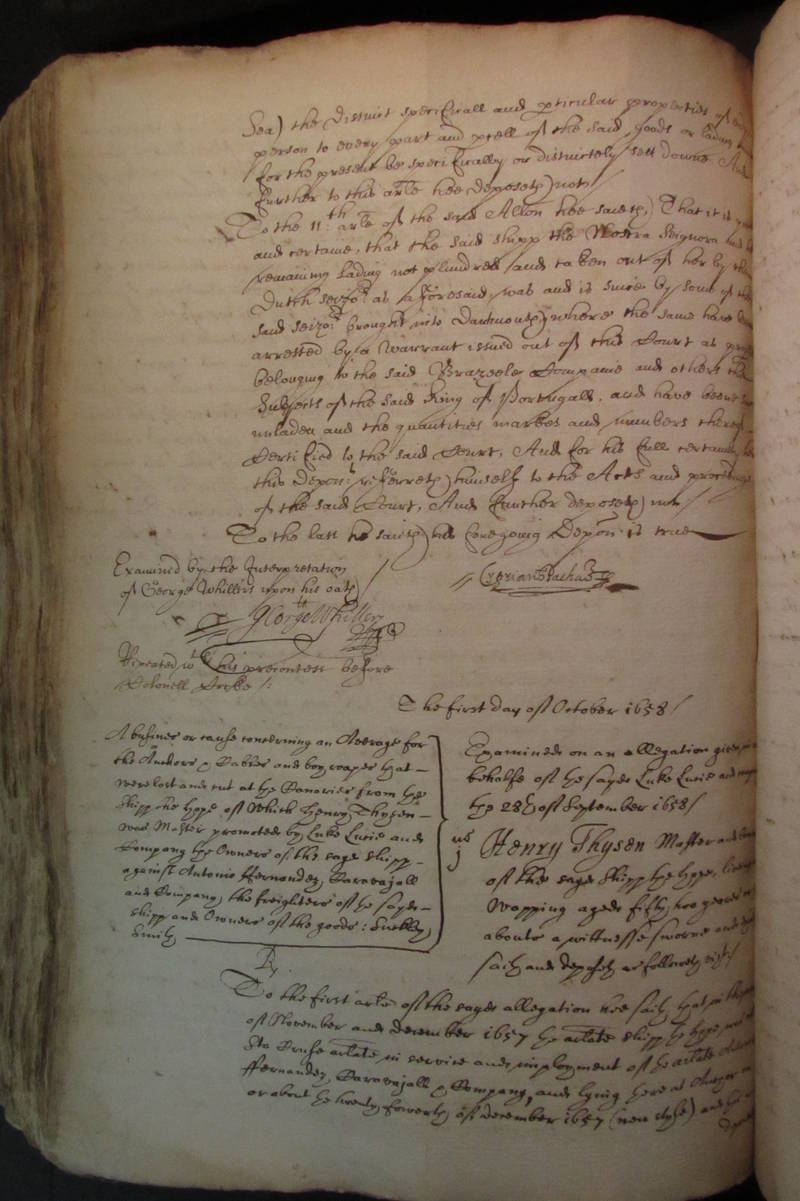 Sea) the distinct specificall and pticular properties of
person to every part and pcell of the said goods or lading
for the present be specifically or distinctely sett downe And
further to this arle hee deposeth not/
To the 11th arle of the said Allon hee saieth, That it is
and certaine, that the said shipp the Nostra Seignora
remaining lading not plundred and taken out of her by the
Dutch seizors as aforesaid, was and is since by some of the
said seizors brought into Dartmouth, where the same have
arrested by a warrant issued out of this Court as
belonging to the said Brazeele Companie and others the
Subjects of the said King of Portugall, and have beene
unladen and the quantities markes and numbers thereof
Certified to the said Court, And for his full certainty
this depont referreth himself to the Acts and proceedings
of the said Court, And further deposeth not
To the last he saieth his foregoing Depon is true
Examined by the Interpretation
of George Whillers upon his oath
George Whillers
Repeated wth his precontest before
Colonell Cocke /:
The first day of October 1658/
A busines or cause concerning an Average for
the Anchors & Cables and boy roapes that
were lost and cut at the Canaries from the
shipp the hope of which Henry Thysen
was Master promoted by Luke Lucie and
Company the Owners of the sayd shipp
against Antonio Fernandez Caravajall
and Company, the freighters of the sayd
shipp and Owners of the goods: Suckley,
Smith
Examined on an allegation given
behalfe of the sayd Luke Lucie and
the 28th of September 1658/
us
j
Henry Thysen Master and
of the sayd shipp the hope, living
Wapping aged fifty two yeares
abouts a wittnesse sworne and
saith and deposeth as followeth vizt/
Rp.
To the first arle of the sayd allegation hee saith that in the
of November and december 1657 the arlate shipp the hope
Sta Cruse arlate in service and imployment of the arlate
ffernandez, Caravajall & Company, and lying there at Anchor
or about the twenty fowerth of december 1657 (new stile) and